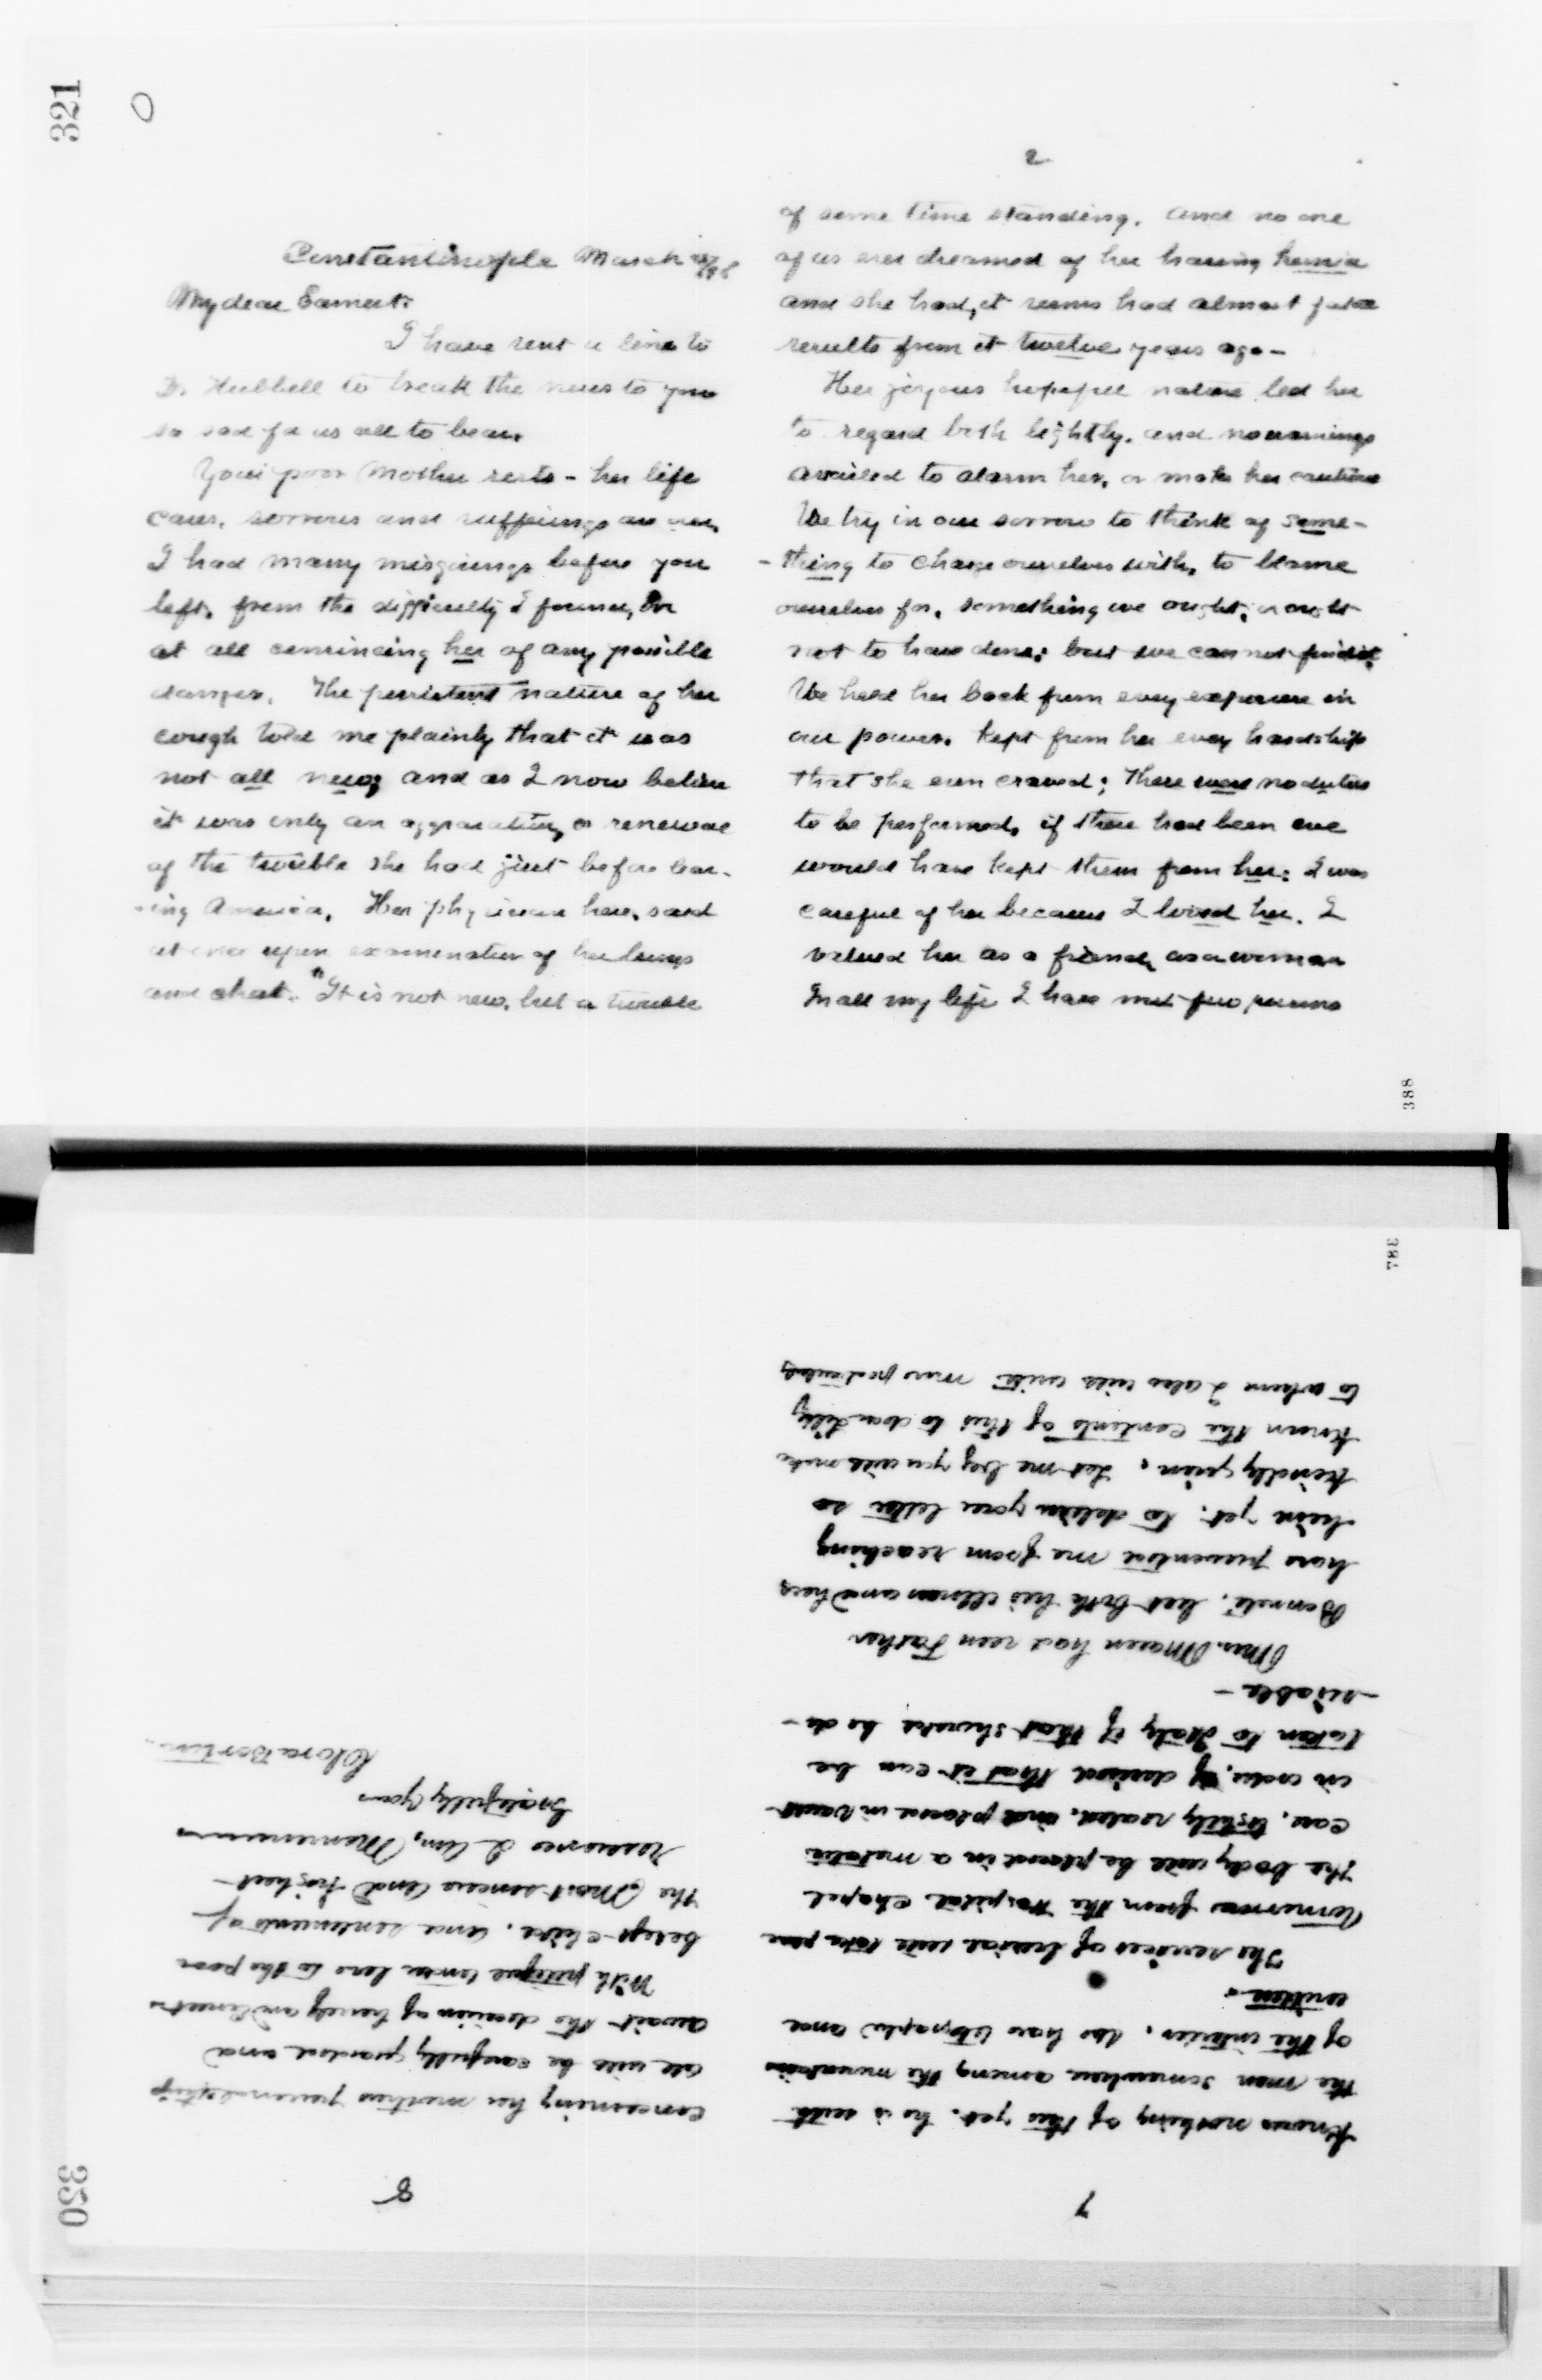 321
Constantinople March
My dear Earnest:
I have sent a line to
Dr. Hubbell to break the news to you
so sad for us all to bear.
Your poor Mother rests - her life
cares, sorrows and sufferings are over.
I had many misgivings before you
left, from the difficulty I found, in
at all convincing her of any possible
danger. The persistent nature of her
cough told me plainly that it was
not all new, and as I now believe
it was only an aggravation, or renewal
of the trouble she had just before leav-
-ing America. Her physician here, said
at once upon examination of her lungs
and chest. "It is not new, but a trouble
2
of some time standing. And no one
of us ever dreamed of her having hernia
and she had, it seems had almost fatal
results from it twelve years ago -
Her joyous hopeful nature led her
to regard both lightly, and no warnings
availed to alarm her, or make her cautious
We try in our sorrow to think of some-
- thing to charge ourselves with, to blame
ourselves for, something we ought, or ought
not to have done; but we can not find it.
We held her back from every exposure in
our power, kept from her every hardship
that she even craved; There were no duties
to be performed, if there had been we
would have kept them from her: I was
careful of her because I loved her. I
valued her as a friend, as a woman
In all my life I have met few persons
388
387
7
knows nothing of this yet. he is with
the men somewhere among the mountains
of the interior. We have telegraphed and
written.
The services of burial will take place
tomorrow from the Hospital Chapel
The body will be placed in a metallic
case, tightly sealed, and placed in vault
in order, if desired that it can be
taken to Italy if that should be de-
-sirable -
Mrs. Mason had seen Father
Bennett, but both his illness and hers
have prevented me from reaching
him yet, to deliver your letter so
kindly given. Let me beg you will make
known the contents of this to dear Lilly
to whom I also will write more particularly
8
concerning her mothers personal
all will be carefully guarded and
await the decision of herself and Ernest
With pitiful tender love to the poor
bereft child, and sentiments of
the most sincere and highest
I am, Monseigneur
Gratefully yours
Clara Barton
320